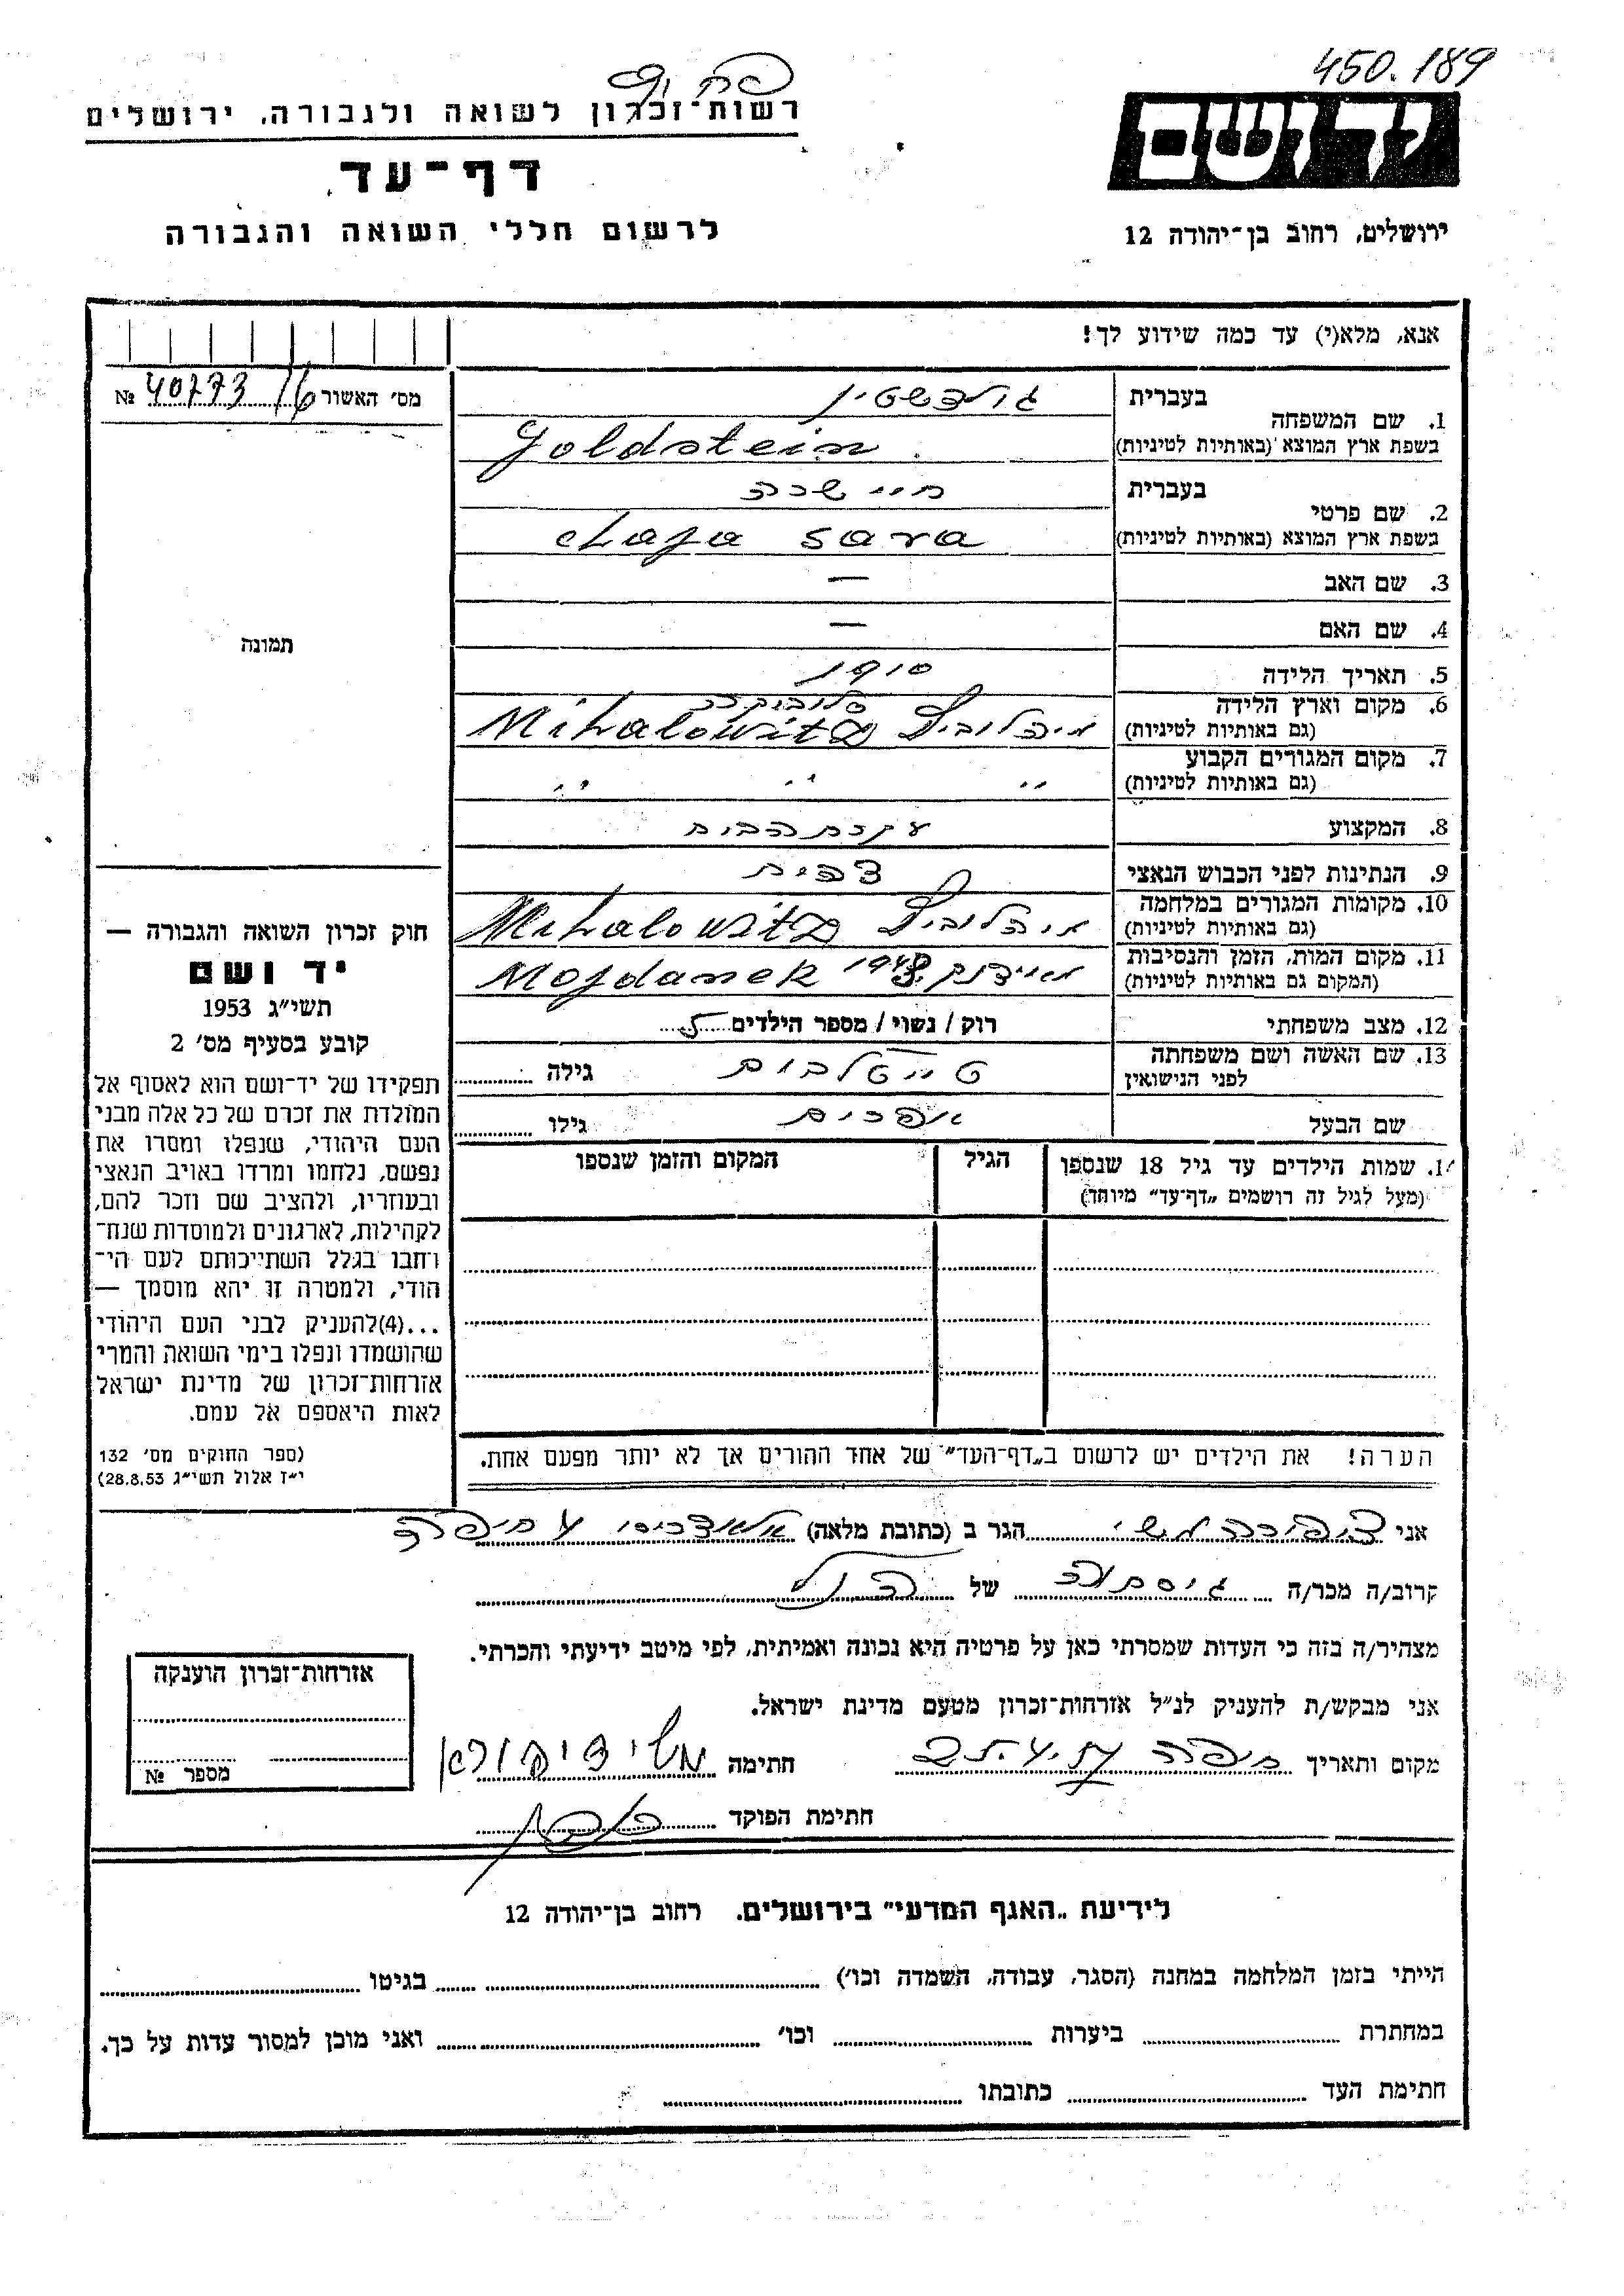 450.189
רשות־זכרון לשואה ולגבורה, ירושלים
דף־עד
לרשום חללי השואה והגבורה
יד ושם
ירושלים, רחוב בן־יהודה 12
אנא, מלא(י) עד כמה שידוע לך!
מס׳ האשור 16 40773 №
1. שם המשפחה בעברית גולדשטין
בשפת ארץ המוצא (באותיות לטיניות) Goldstein
2. שם פרטי בעברית חיי שרה
בשפת ארץ המוצא (באותיות לטיניות) chaja sara
3. שם האב —
4. שם האם —
5. תאריך הלידה 1910
6. מקום וארץ הלידה
(גם באותיות לטיניות) מיהלוביץ Mihalowitz
7. מקום המגורים הקבוע
(גם באותיות לטיניות) " " "
8. המקצוע עקרת הבית
9. הנתינות לפני הכבוש הנאצי
10. מקומות המגורים במלחמה
(גם באותיות לטיניות) מיהלוביץ Mihalowitz
11. מקום המות, הזמן והנסיבות
(המקום גם באותיות לטיניות) מאידנק Mojdanek
12. מצב משפחתי רוק / נשוי / מספר הילדים 5
13. שם האשה ושם משפחתה
לפני הנישואין טייטלבוים גילה
שם הבעל אפרים גילו
14. שמות הילדים עד גיל 18 שנספו
(מעל לגיל זה רושמים „דף־עד״ מיוחד)
הגיל
המקום והזמן שנספו
תמונה
חוק זכרון השואה והגבורה —
יד ושם
תשי״ג 1953
קובע בסעיף מס׳ 2
תפקידו של יד־ושם הוא לאסוף אל
המולדת את זכרם של כל אלה מבני
העם היהודי, שנפלו ומסרו את
נפשם, נלחמו ומרדו באויב הנאצי
ובעוזריו, ולהציב שם וזכר להם,
לקהילות, לארגונים ולמוסדות שנח־
רבו בגלל השתייכותם לעם הי־
הודי, ולמטרה זו יהא מוסמך —
...(4)להעניק לבני העם היהודי
שהושמדו ונפלו בימי השואה והמרי
אזרחות־זכרון של מדינת ישראל
לאות היאספם אל עמם.
(ספר החוקים מס׳ 132
י״ז אלול תשי״ג 28.8.53)
הערה! את הילדים יש לרשום ב„דף־העד״ של אחד ההורים אך לא יותר מפעם אחת.
אני צפורה משי הגר ב (כתובת מלאה) חיפה
קרוב/ה מכר/ה גיסתה של הנ״ל
מצהיר/ה בזה כי העדות שמסרתי כאן על פרטיה היא נכונה ואמיתית, לפי מיטב ידיעתי והכרתי.
אני מבקש/ת להעניק לנ״ל אזרחות־זכרון מטעם מדינת ישראל.
מקום ותאריך חיפה חתימה משי ציפורא
חתימת הפוקד
אזרחות־זכרון הוענקה
מספר №
לידיעת „האגף המדעי״ בירושלים, רחוב בן־יהודה 12
הייתי בזמן המלחמה במחנה (הסגר, עבודה, השמדה וכו׳) בגיטו
במחתרת ביערות וכו׳ ואני מוכן למסור עדות על כך.
חתימת העד כתובתו